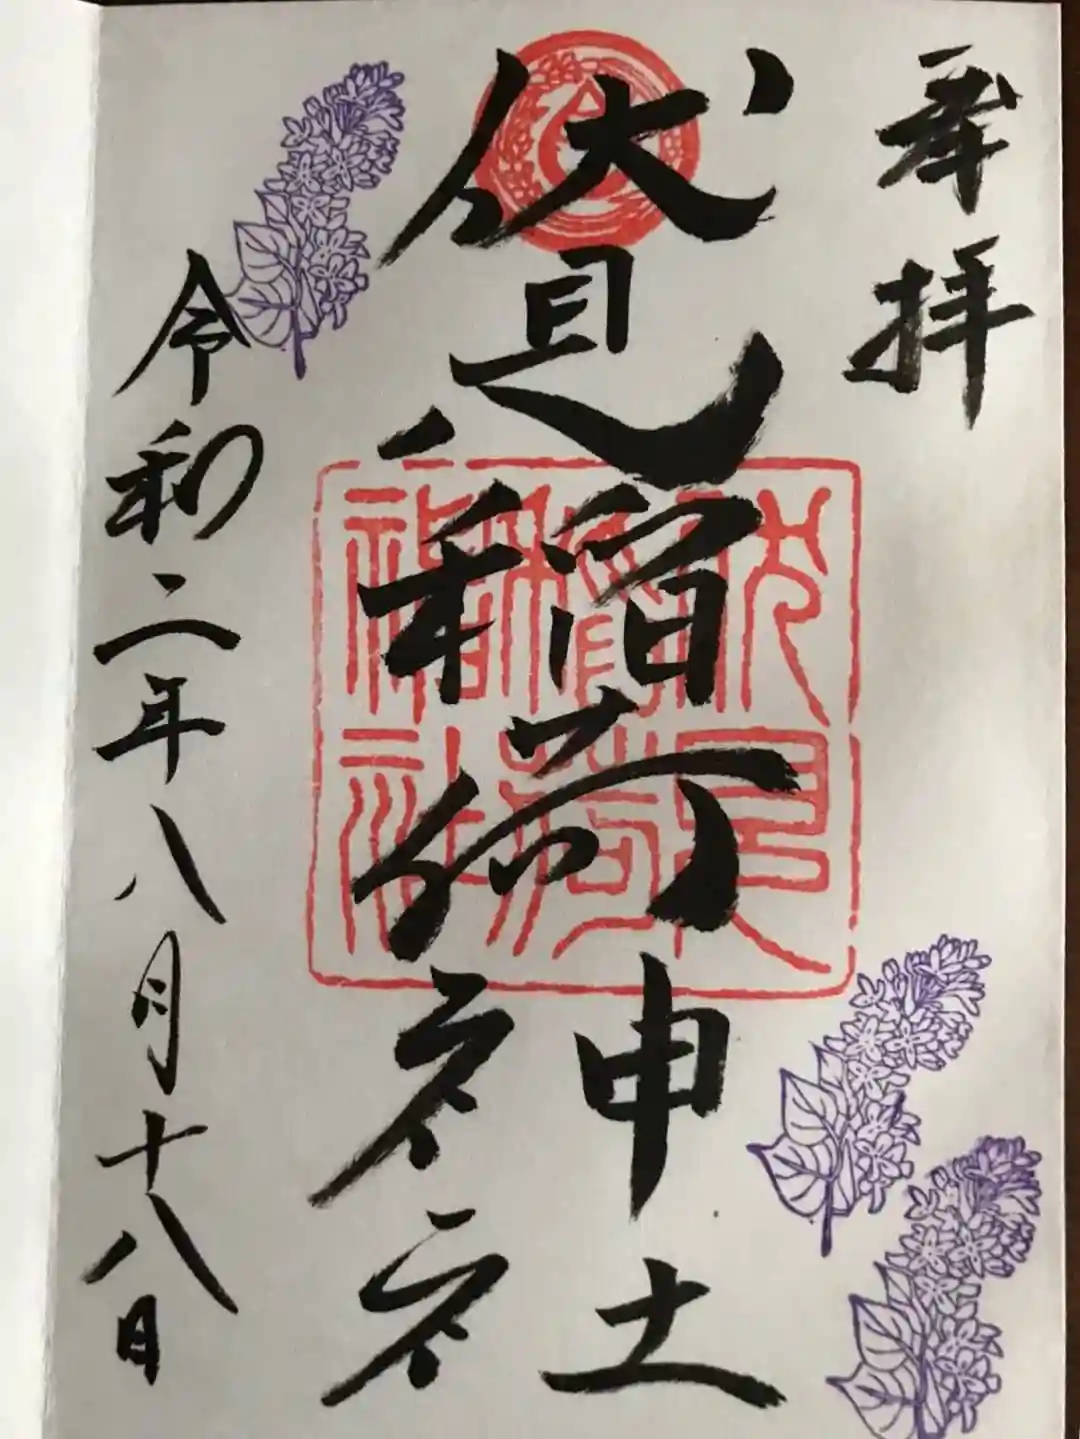 奉拝
伏見稲荷神社
伏見
稲荷
神社
令和二年八月十八日